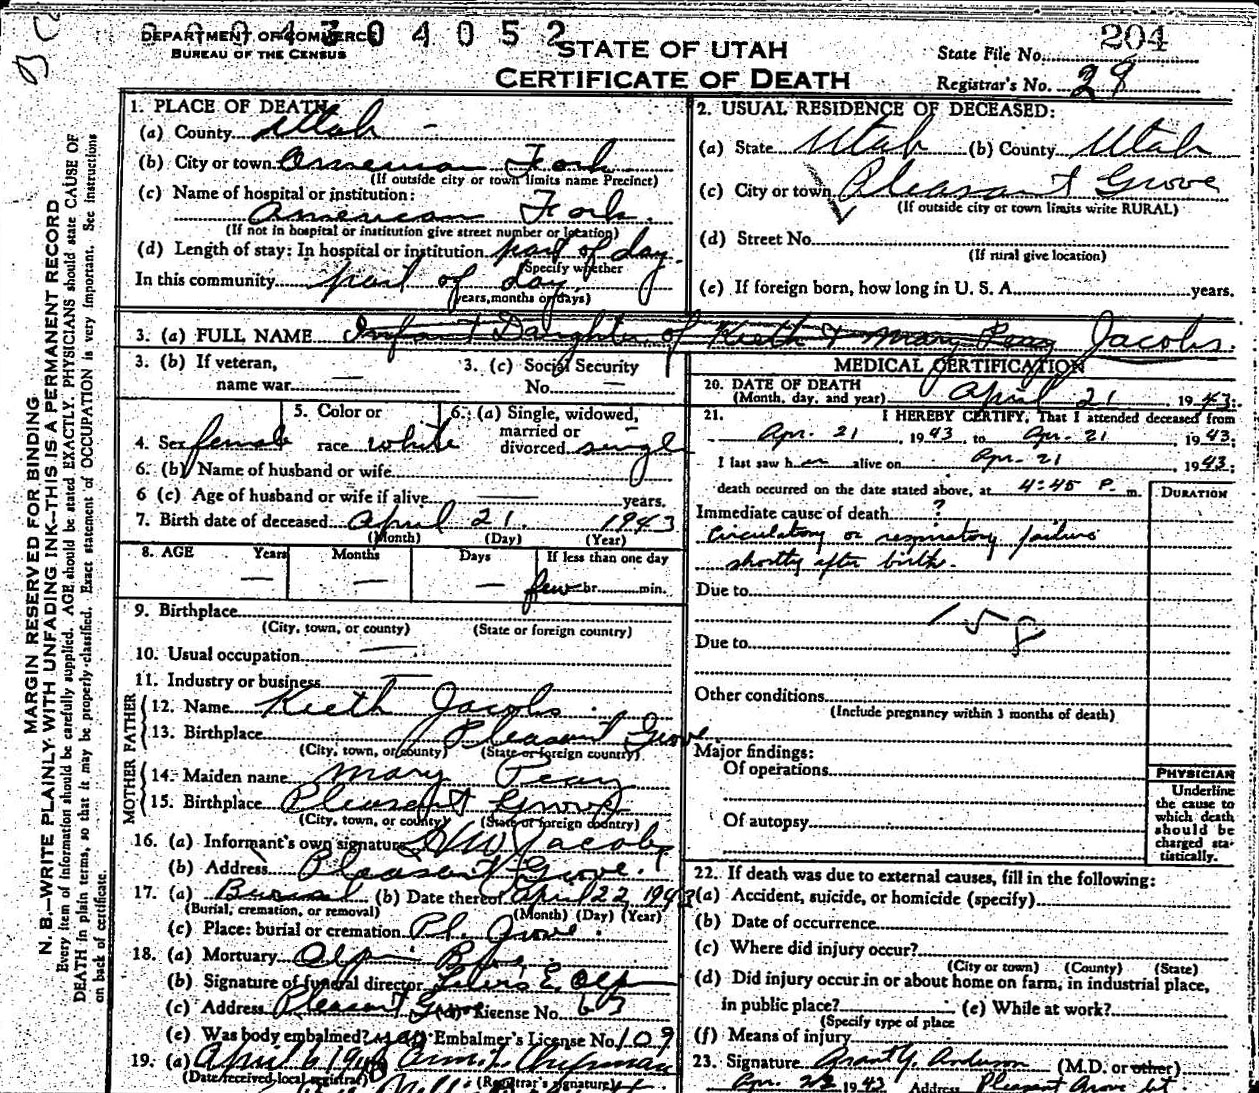 DEPARTMENT OF COMMERCE
BUREAU OF THE CENSUS
0 0 0 4 3 0 4 0 5 2
STATE OF UTAH
CERTIFICATE OF DEATH
204
State File No.
Registrar's No. 28
MARGIN RESERVED FOR BINDING
N. B.—WRITE PLAINLY WITH UNFADING INK—THIS IS A PERMANENT RECORD
Every item of information should be carefully supplied. AGE should be stated EXACTLY. PHYSICIANS should state CAUSE OF
DEATH in plain terms, so that it may be properly classified. Exact statement of OCCUPATION is very important. See instructions
on back of certificate.
1. PLACE OF DEATH
(a) County Utah
(b) City or town American Fork
(If outside city or town limits name Precinct)
(c) Name of hospital or institution:
American Fork.
(If not in hospital or institution give street number or location)
(d) Length of stay: In hospital or institution part of day.
(Specify whether
In this community part of day.
years, months or days)
2. USUAL RESIDENCE OF DECEASED:
(a) State Utah (b) County Utah
(c) City or town Pleasant Grove
(If outside city or town limits write RURAL)
(d) Street No.
(If rural give location)
(e) If foreign born, how long in U. S. A. years.
3. (a) FULL NAME Infant Daughter of Keith & Mary Peay Jacobs.
3. (b) If veteran,
name war —
3. (c) Social Security
No. —
4. Sex female
5. Color or
race white
6. (a) Single, widowed,
married or
divorced single
6. (b) Name of husband or wife
6 (c) Age of husband or wife if alive — years.
7. Birth date of deceased April 21. 1943
(Month) (Day) (Year)
8. AGE Years Months Days If less than one day
— — — few hr. min.
9. Birthplace
(City, town, or county) (State or foreign country)
10. Usual occupation —
11. Industry or business —
FATHER
12. Name Keith Jacobs
13. Birthplace Pleasant Grove
(City, town, or county) (State or foreign country)
MOTHER
14. Maiden name Mary Peay
15. Birthplace Pleasant Grove
(City, town, or county) (State or foreign country)
16. (a) Informant's own signature Jacobs
(b) Address Pleasant Grove.
17. (a) Burial (b) Date thereof April 22 1943
(Burial, cremation, or removal) (Month) (Day) (Year)
(c) Place: burial or cremation Pl. Grove.
18. (a) Mortuary
(b) Signature of funeral director
(c) Address Pleasant Grove (d) License No. 63
(e) Was body embalmed? Embalmer's License No. 109
19. (a) April
(Date received local registrar) (Registrar's signature)
MEDICAL CERTIFICATION
20. DATE OF DEATH
(Month, day, and year) April 21 1943.
21. I HEREBY CERTIFY, That I attended deceased from
Apr. 21, 1943 to Apr. 21 1943;
I last saw h er alive on Apr. 21, 1943;
death occurred on the date stated above, at 4:45 P. m.
DURATION
Immediate cause of death ?
Circulatory or respiratory failure
shortly after birth.
Due to
158
Due to
Other conditions
(Include pregnancy within 3 months of death)
Major findings:
Of operations
Of autopsy
PHYSICIAN
Underline
the cause to
which death
should be
charged sta-
tistically.
22. If death was due to external causes, fill in the following:
(a) Accident, suicide, or homicide (specify)
(b) Date of occurrence
(c) Where did injury occur?
(City or town) (County) (State)
(d) Did injury occur in or about home on farm, in industrial place,
in public place? (e) While at work?
(Specify type of place
(f) Means of injury
23. Signature Grant Y. Anderson (M.D. or other)
Apr. 22 1943 Address Pleasant Grove Ut.